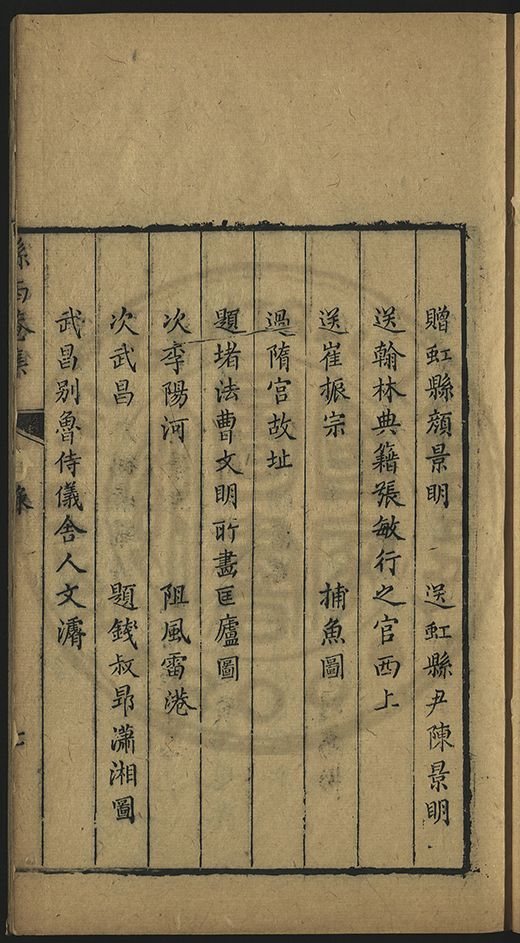 贈虹縣顏景明　送虹縣尹陳景明
送翰林典籍張敏行之官西上
送崔振宗　捕魚圖
過隋宮故址
題堵法曹文明所畫匡廬圖
次李陽河　阻風雷港
次武昌　題錢叔昂瀟湘圖
武昌別魯侍儀舍人文濬